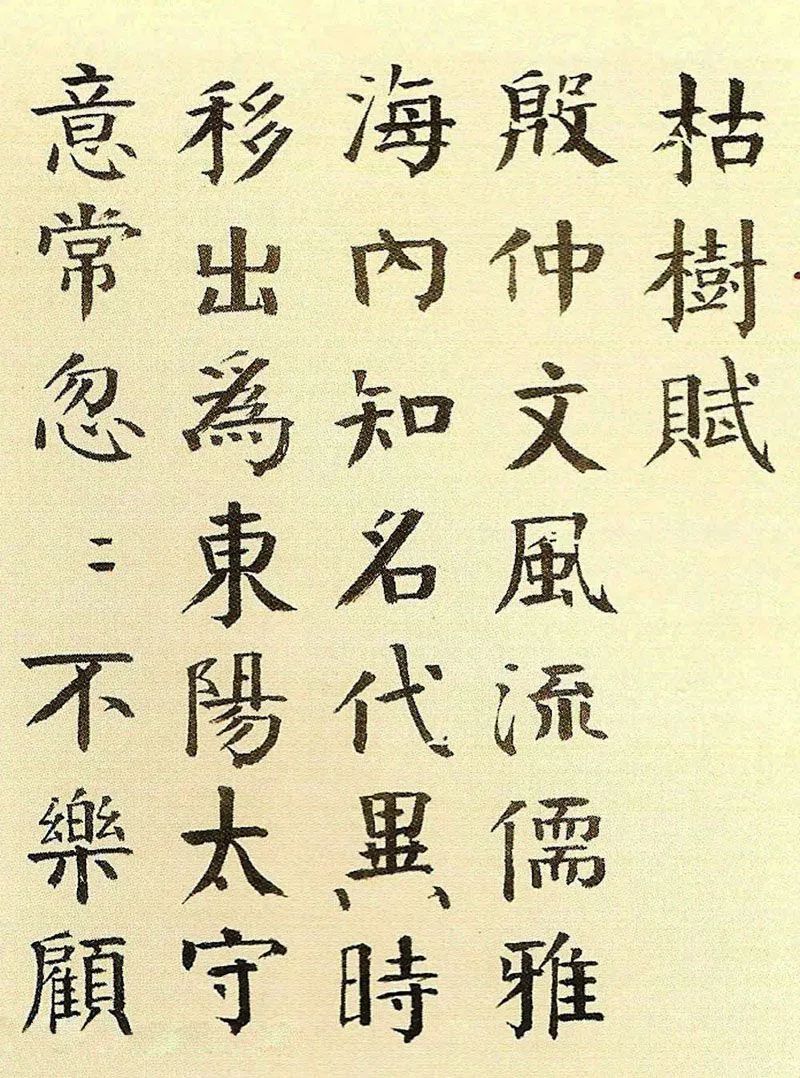 枯樹賦
殷仲文風流儒雅
海內知名代異時
移出為東陽太守
意常忽〻不樂顧